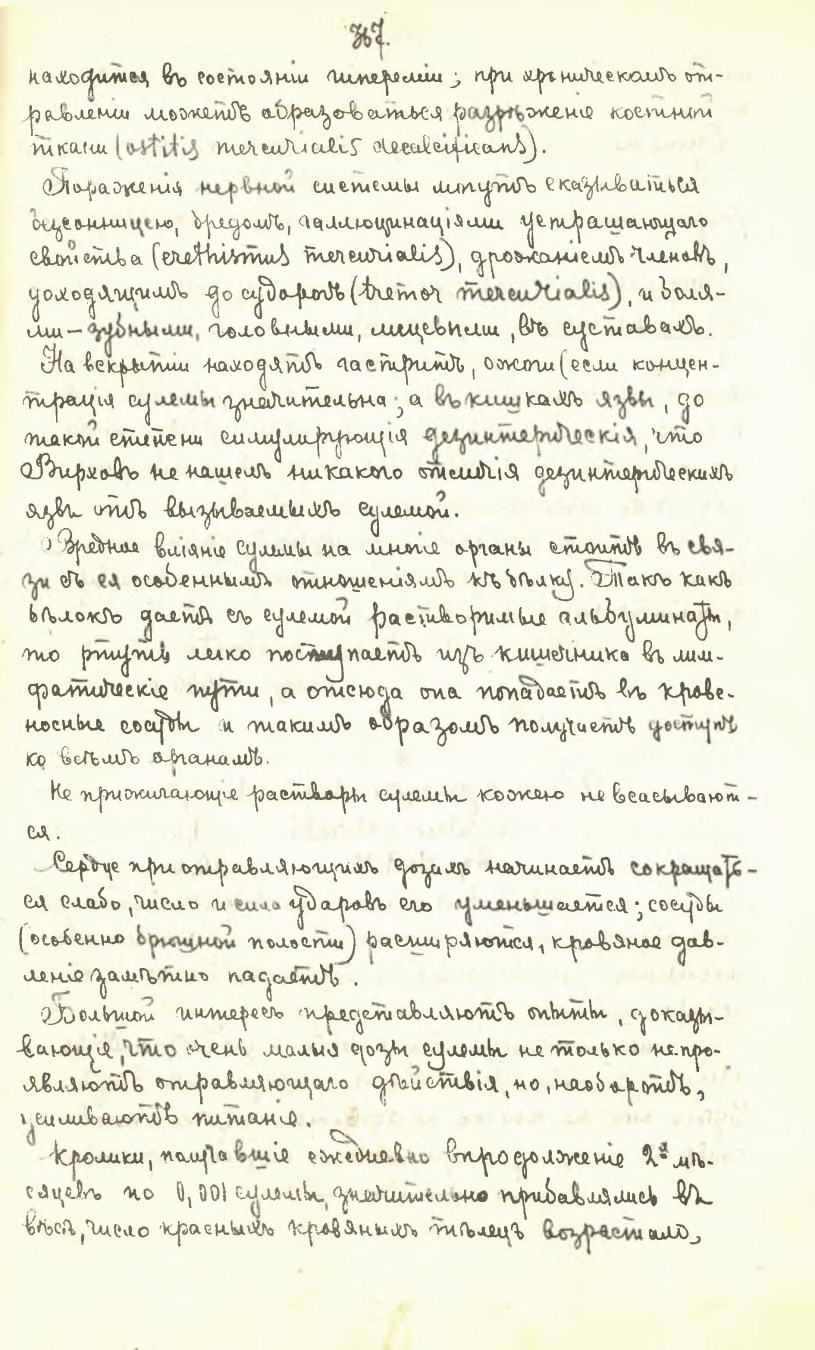 367.
находится въ состоянiи гиперемiи; при хроническомъ от-
равленiи можетъ образоваться разрѣженiе костной
ткани (ostitis mercurialis decalcificans).
Пораженiя нервной системы могутъ сказываться
безсонницею, бредомъ, галлюцинацiями устрашающаго
свойства (erethismus mercurialis), дрожанiемъ членовъ,
доходящимъ до судорогъ (tremor mercurialis), и боля-
ми – зубными, головными, лицевыми, въ суставахъ.
На вскрытiи находятъ гастритъ, ожоги (если концен-
трацiя сулемы значительна; а въ кишкахъ язвы, до
такой степени симулирующiя дезинтерическiя, что
Вирховъ не нашелъ никакого отличiя дезинтерическихъ
язвъ отъ вызываемыхъ сулемой.
Вредное влiянiе сулемы на многiе органы стоитъ въ свя-
зи съ ея особеннымъ отношенiямъ къ бѣлку. Такъ какъ
бѣлокъ даетъ съ сулемой растворимые альбуминаты,
то ртуть легко поступаетъ изъ кишечника въ лим-
фатическiе пути, а отсюда она попадаетъ въ крове-
носные сосуды и такимъ образомъ получаетъ доступъ
ко всѣмъ органамъ.
Не прижигающiе растворы сулемы кожею не всасывают-
ся.
Сердце при отравляющихъ дозахъ начинаетъ сокращать-
ся слабо, число и сила ударовъ его уменьшается; сосуды
(особенно брюшной полости) расширяются, кровяное дав-
ленiе замѣтно падаетъ.
Большой интересъ представляютъ опыты, доказы-
вающiя, что очень малыя дозы сулемы не только не про-
являютъ отравляющаго дѣйствiя, но, наоборотъ,
усиливаютъ питанiе.
Кролики, получавшiе ежедневно впродолженiе 2хъ мѣ-
сяцевъ по 0,001 сулемы, значительно прибавлялись въ
вѣсѣ, число красныхъ кровяныхъ тѣлецъ возрастало,